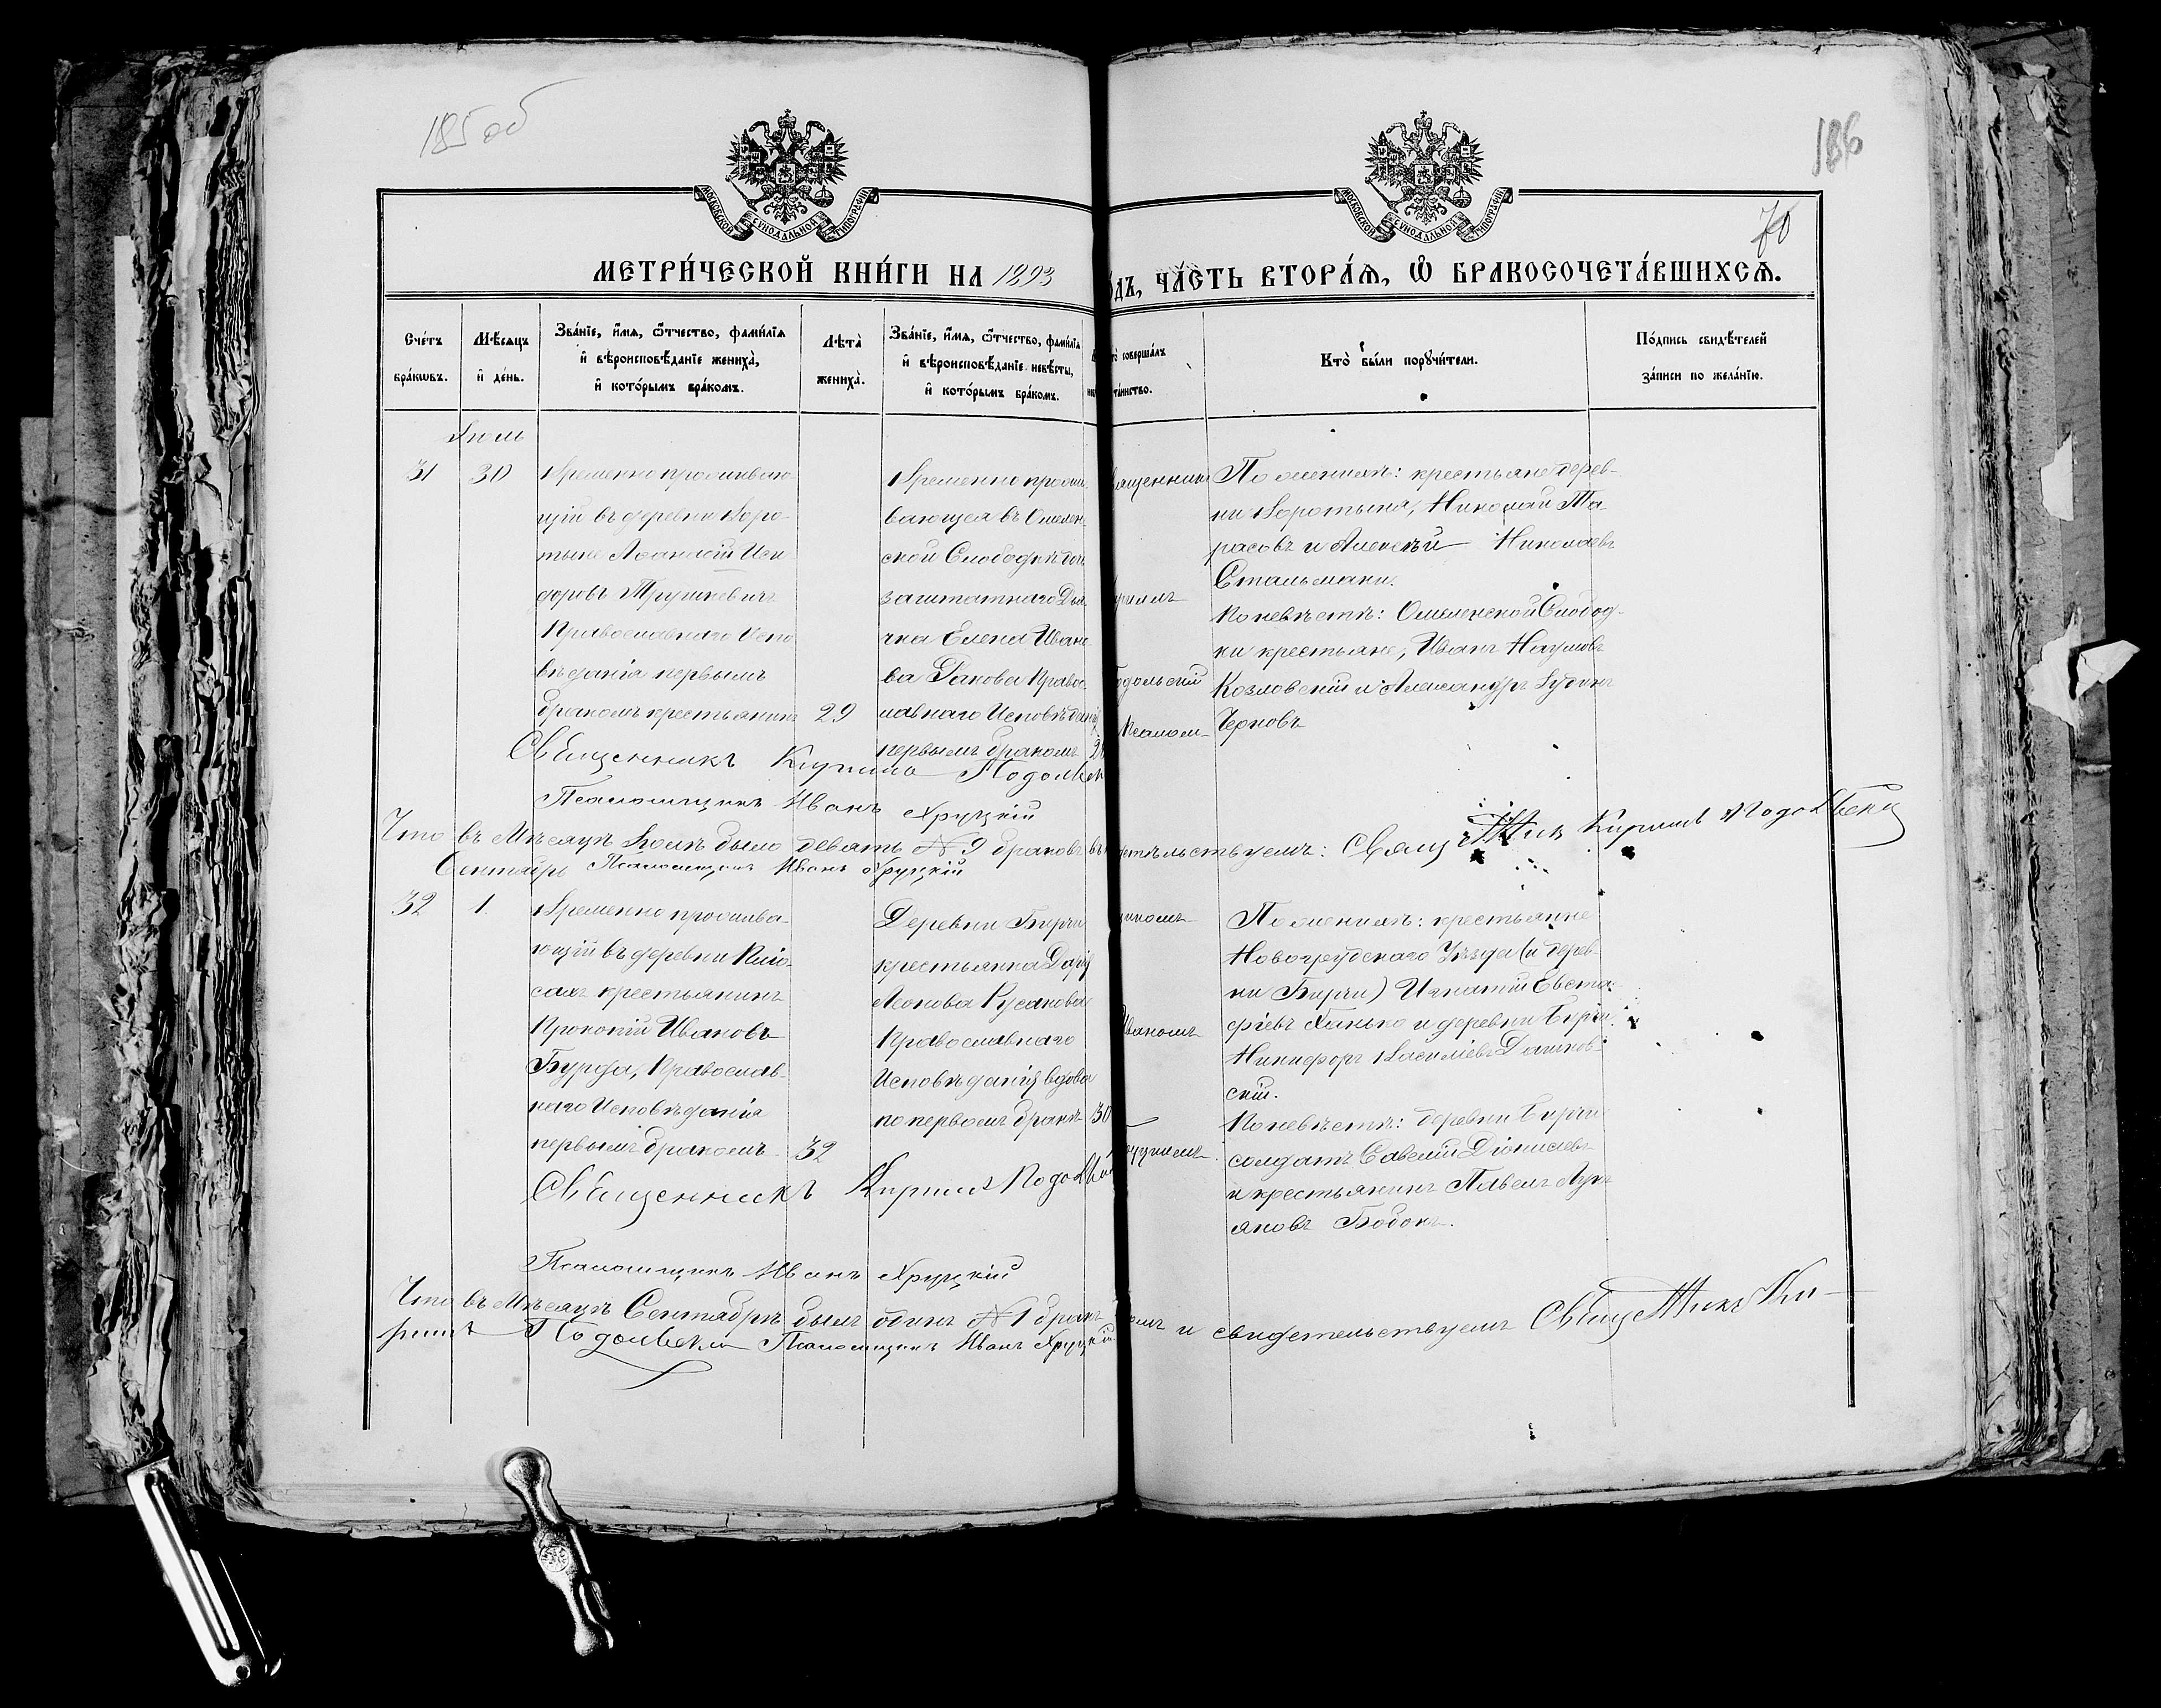 185 об
186
70
МОСКОВСКОЙ СѴНОДАЛЬНОЙ ТИПОГРАФІИ
МОСКОВСКОЙ СѴНОДАЛЬНОЙ ТИПОГРАФІИ
МЕТРИ́ЧЕСКОЙ КНИ́ГИ НА 1893
ОДЪ, ЧА́СТЬ ВТОРА́Ѧ, Ѡ҆ БРАКОСОЧЕТА́ВШИХСѦ.
Сче́тъ
бра́кѡвъ.
Мѣ́сяцъ
и҆ де́нь.
Зва́нїе, и҆́мя, ѻ҆́тчество, фами́лїя
и҆ вѣроисповѣ́данїе жениха̀,
и҆ кото́рымъ бра́комъ.
Лѣта̀
жениха̀.
Зва́нїе, и҆́мя, ѻ҆́тчество, фами́лїя
и҆ вѣроисповѣ́данїе невѣ́сты,
и҆ кото́рымъ бра́комъ.
то̀ соверша́лъ
та́инство.
Кто̀ бы́ли порꙋчи́тели.
По́дпись свидѣ́телей
за́писи по жела́нїю.
Іюль
31
30
Временно проживаю
щій въ деревни Воро-
тыне Исидоровъ Трушкевичъ
Православнаго Испо
вѣданія первымъ
бракомъ крестьянинъ
29
Временно прожи
вающея въ Омелен
ской Слободкѣ дочь
заштатнаго Дья
чка Елена Ивано
ва Православнаго Исповѣданія
первымъ бракомъ
ященникъ
одольскій
Псалом-
По женихѣ: крестьяне дерев-
ни Воротына, Николай Та
расовъ и Алексѣй Николаевъ
Стальмаки.
По невѣстѣ: Омеленской Слобод-
ки крестьяне, Иванъ Наумовъ
Козловскій и Александръ
Черновъ
Священникъ Кирилъ Подольскі
Псаломщикъ Иванъ Хруцкій
Что въ Мѣсяцѣ Іюлѣ было девять № 9 браковъ въ
детельствуемъ: Свящ Кирилъ Подольскій
Сентябрь Псаломщикъ Иванъ Хруцкій
32
1.
Временно прожива-
ющій въ деревни
крестьянинъ
Прокопій Ивановъ
Бурда, Православ-
наго Исповѣданія
первымъ бракомъ
32
Деревни Бирчи
крестьянка Дарія
Леонова Русакова
Православнаго
Исповѣданія вдова
по первомъ бракѣ
30
никомъ
Иваномъ
По женихѣ: крестьяне
Новогрудскаго Уѣзда (и дерев-
ни Бирчи) Игнатій Евста-
фіевъ Ханько и деревни Бирчи
Никифоръ Василіевъ Дашков-
скій.
По невѣстѣ: деревни Бирчи
солдатъ Савелій Діонисіевъ
и крестьянинъ Павелъ Лук
яновъ Бобокъ.
Священникъ Кирилъ Подольскі
Псаломщикъ Иванъ Хруцкій
Что въ Мѣсяцѣ Сентябрѣ былъ одинъ № 1 бракъ
емъ и свидетельствуемъ Священникъ Ки-
рилъ Подольскій Псаломщикъ Иванъ Хруцкій.